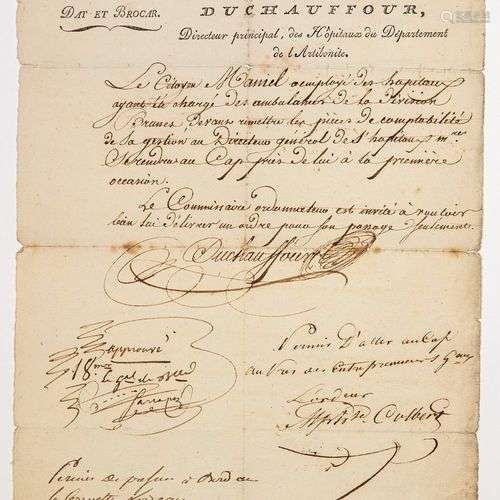 DAT ET BROCAR.
DUCHAUFFOUR,
Directeur principal, des Hôpitaux du Département
de l'Artibonite.
Le Citoyen Mamel employé des hopitaux
ayant la charge des ambulances de la Division
Brunet, devant remettre les pièces de comptabilité
de sa gestion au Directeur général des hopitaux mres
Se rendra au Cap près de lui à la première
occasion.
Le Commissaire ordonnateur est invité à vouloir
bien lui délivrer un ordre pour son passage seulement.
Duchauffour
approuvé
18
Permis D'aller au Cap
au
L'ordeur
Colbert
Permis de passer à bord de